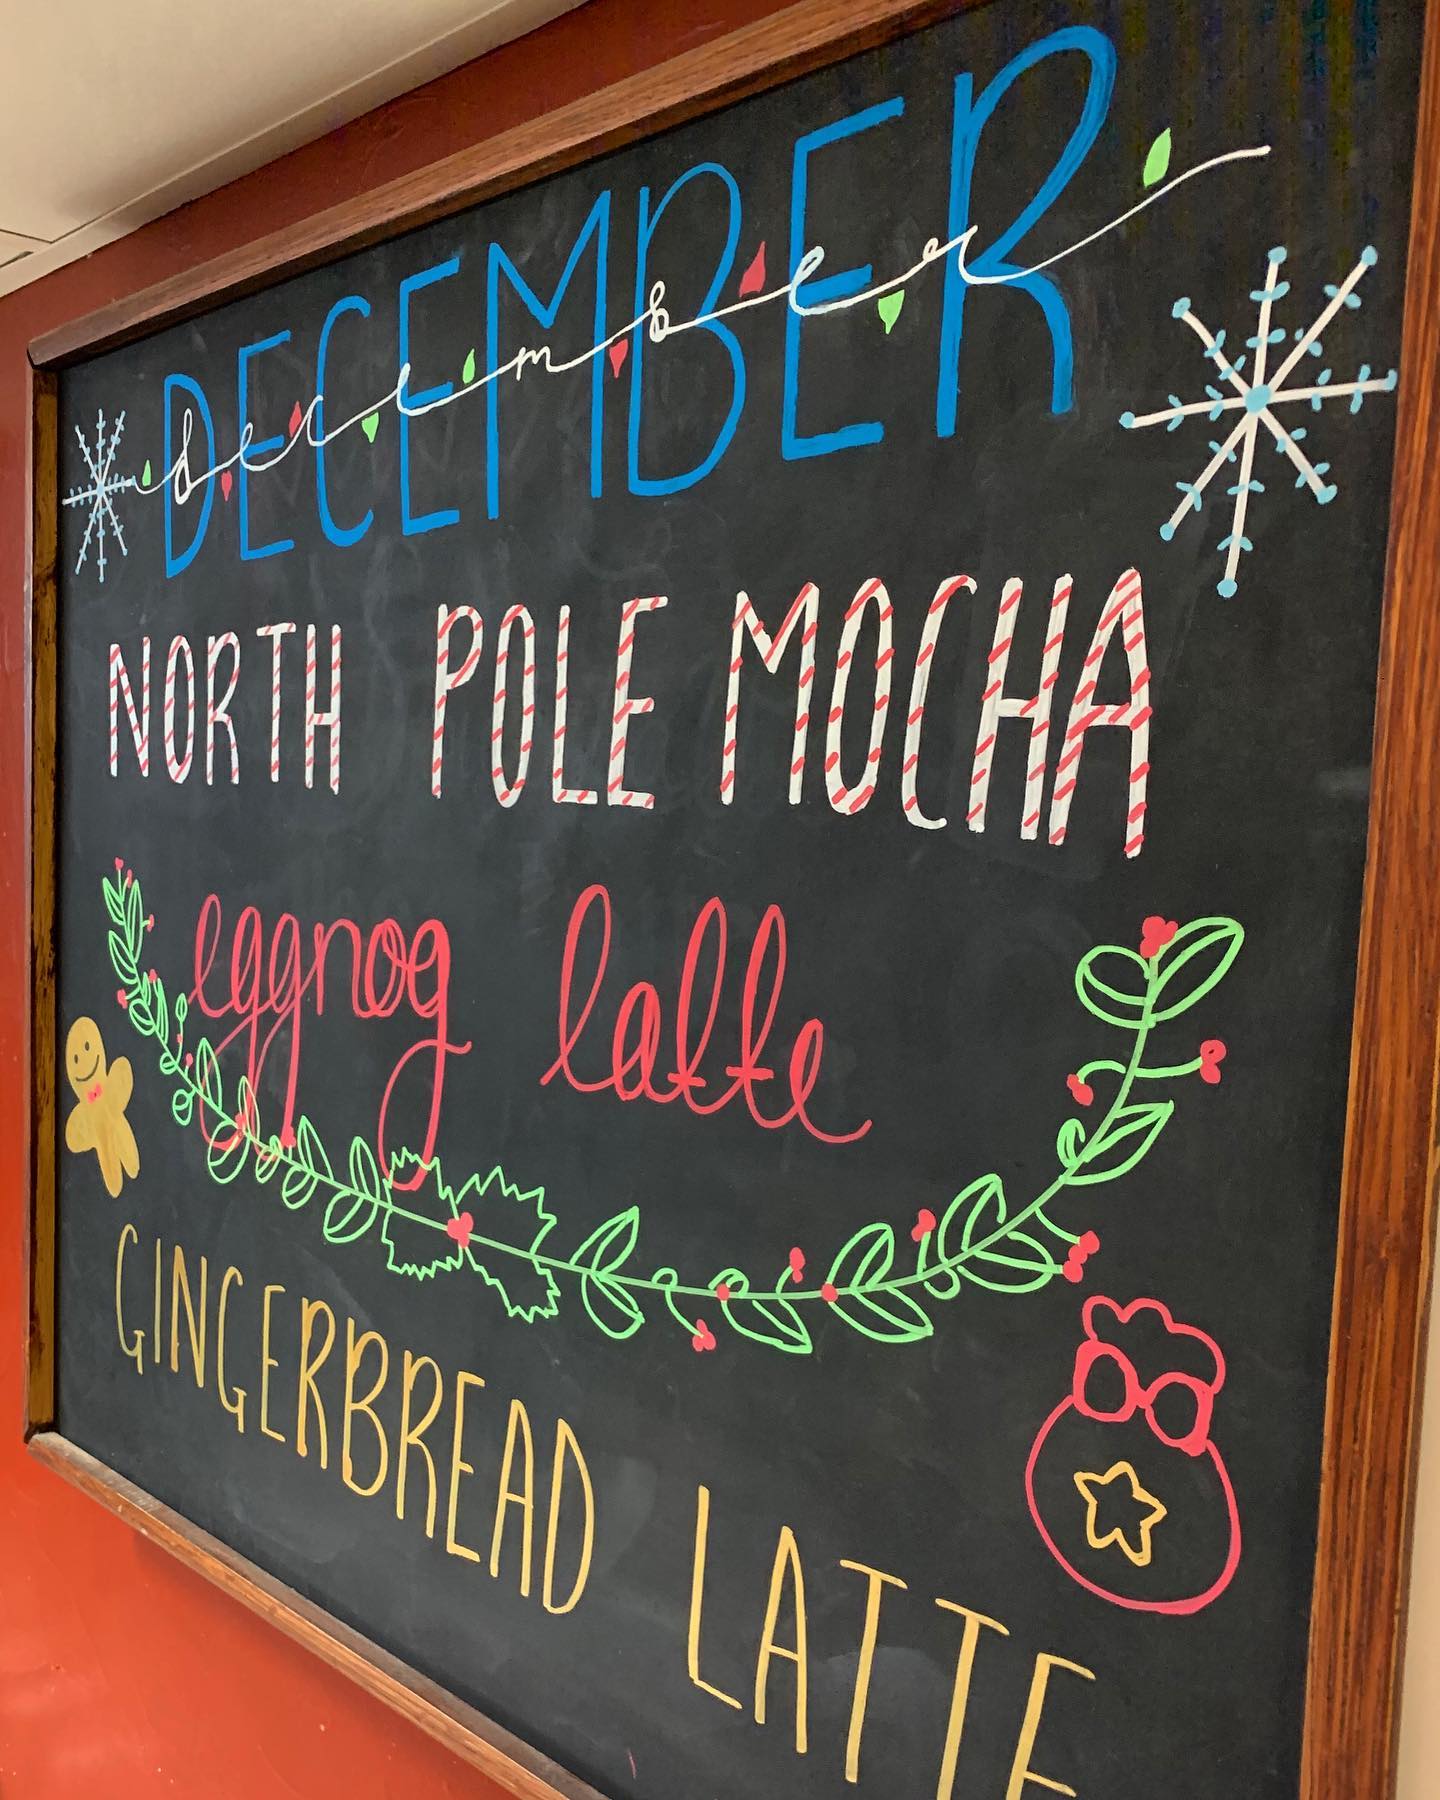 DECEMBER
december
NORTH POLE MOCHA
eggnog latte
GINGERBREAD LATTE